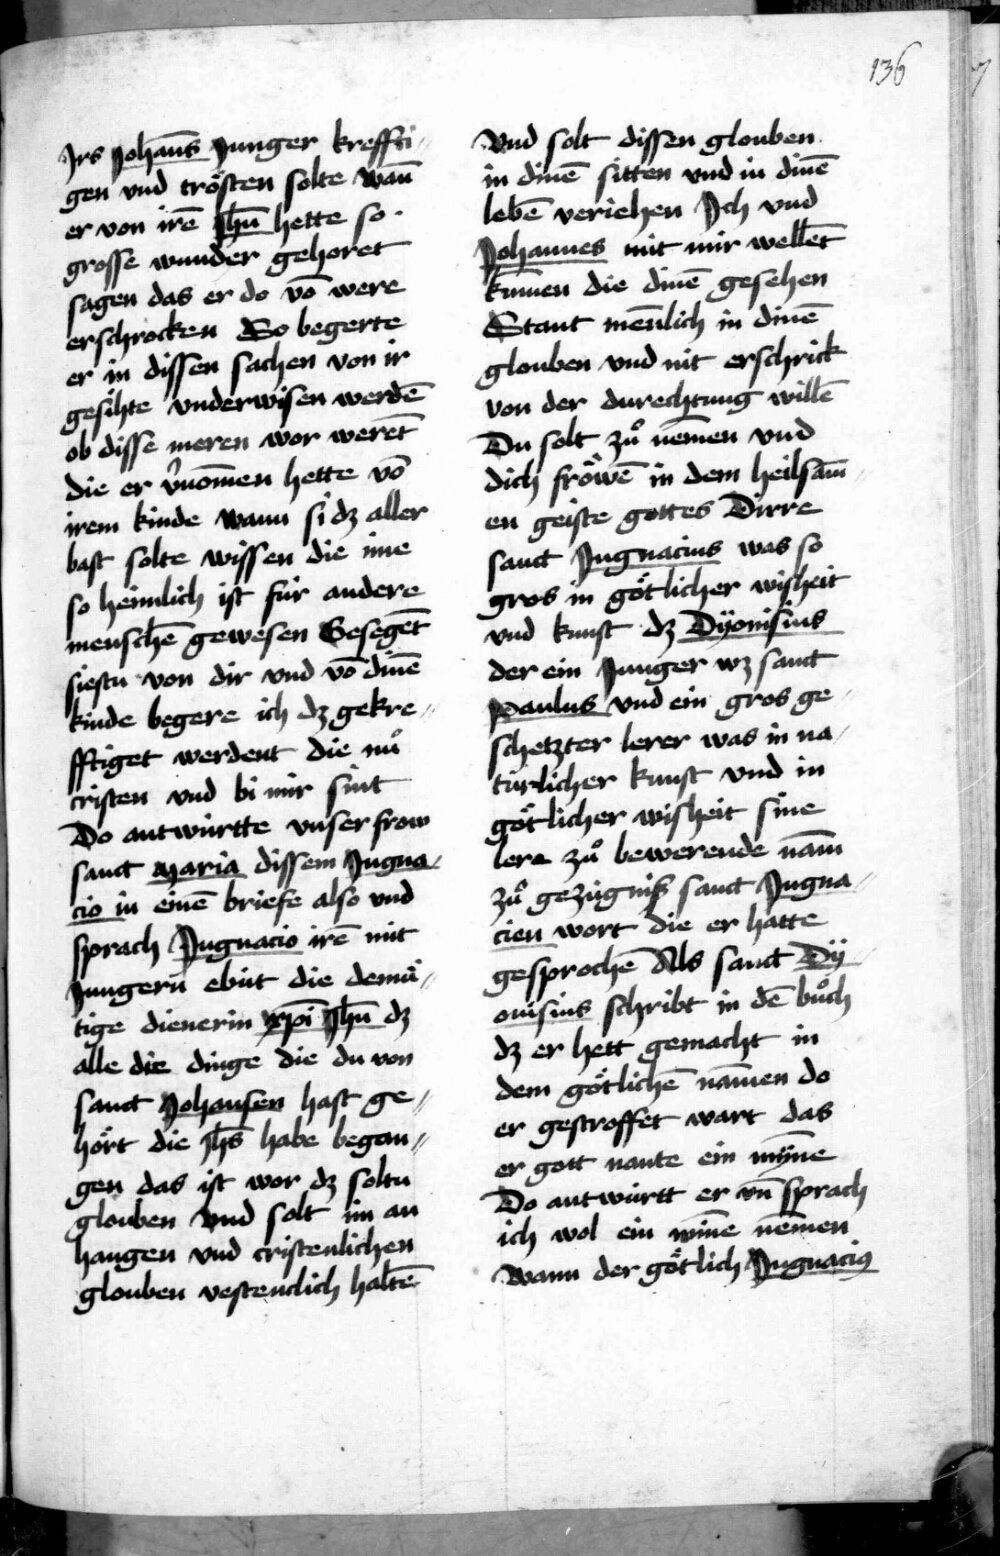 136
Irs Johans̄ Junger kreffti〃
gen vnd trösten solte wan̄
er von irē Jhū hette so
grosse wunder gehoret
sagen das er do vō were
erschrocken So begerte
er in dissen sachen von ir
gesihte vnderwisen werdē
ob disse meren wor werēt
die er v̾nom̄en hette vō
irem kinde wann si dz aller
bast solte wissen die ime
so heimlich ist für andere
menschē gewesen Gesegēt
siestu von dir vnd vō dinē
kinde begere ich dz gekre〃
fftiget werdent die nuͦ
cristen vnd bi mir sint
Do antwürtte vnser frow
sanct maria dissem Jngna〃
cio in einē briefe also vnd
sprach Jngnacio irē mit
Jungern̄ ebüt die demü〃
tige dienerin xp̄i Jhū dz
alle die dinge die du von
sanct Johansen hast ge〃
hört die Jhs̄ habe began〃
gen das ist wor dz soltu
glouben vnd solt im an
hangen vnd cristenlichen
glouben vestenclich haltē
Vnd solt dissen glouben
in dinē sitten vnd in dinē
lebē veriehen Jch vnd
Johannes mit mir wellēt
kum̄en die dinē gesehen
Stant men̄lich in dinē
glouben vnd nit erschrick
von der durechtung willē
Du solt zuͦ nem̄en vnd
dich fröwē in dem heilsam̄〃
en geiste gottes Dirre
sanct Jngnacius was so
gros in götlicher wisheit
vnd kunst dz Dyonisius
der ein Junger wz sanct
Paulus vnd ein gros ge〃
schetzter lerer was in na〃
türlicher kunst vnd in
götlicher wisheit sine
lere zuͦ bewerende nam̄
zuͦ gezügniß sanct Jngna〃
cien wort die er hatte
gesprochē Als sanct Dy〃
onisius schribt in dē buͦch
dz er hett gemacht in
dem götlichē nam̄en do
er gestroffet wart das
er gott nante ein myn̄e
Do antwürtt er vn̄ sprach
ich wol ein min̄e nem̄en
Wann der götlich Jngnacius